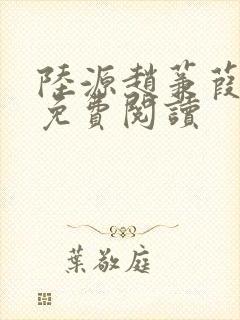 陸源趙蒹葭
免費閱讀
葉敬庭